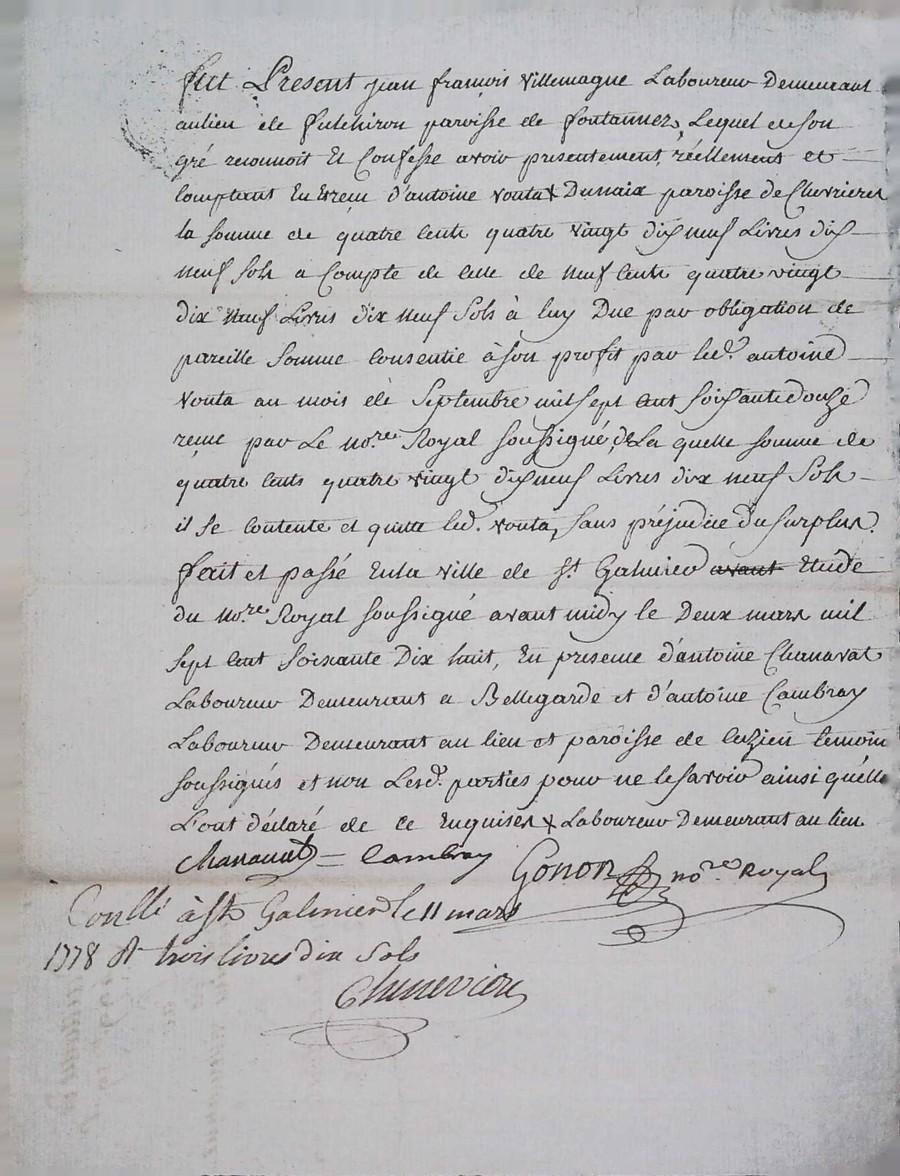 fut Présent jean françois Villemagne Laboureur Demeurant
au lieu de futchiron paroisse de fontannez, Lequel de son
gré reconnoit Et Confesse avoir presentement, réellement et
Comptant Eu Et reçu d'antoine vouta X Dunaix paroisse de Chevrieres
la somme de quatre cents quatre vingt dix neuf Livres dix
neuf sols a Compte de celle de neuf cents quatre vingt
dix neuf Livres dix neuf sols à luy Due par obligation de
pareille somme Consentie à son profit par led. antoine
vouta au mois de Septembre mil sept cent soixante douze
reçue par Le no.re Royal soussigné, de La quelle somme de
quatre cents quatre vingt dix neuf Livres dix neuf sols
il se contente et quitte led. vouta, sans préjudice du surplus.
fait et passé En la ville de S.t Galmier avant Etude
du no.re Royal soussigné avant midy le Deux mars mil
sept cent soixante Dix huit, En presence d'antoine Chanavat
Laboureur Demeurant a Bellegarde et d'antoine Cambray
Laboureur Demeurant au lieu et paroisse de Cuzieu temoin
soussignés et non Lesd. parties pour ne le savoir ainsi qu'elle
L'ont déclaré de ce Enquises X Laboureur Demeurant au lieu
Chanavat = Cambray Gonon no.re Royal
Conllé à St Galmier le 11 mars
1778 Rt trois livres dix sols
Chenevier